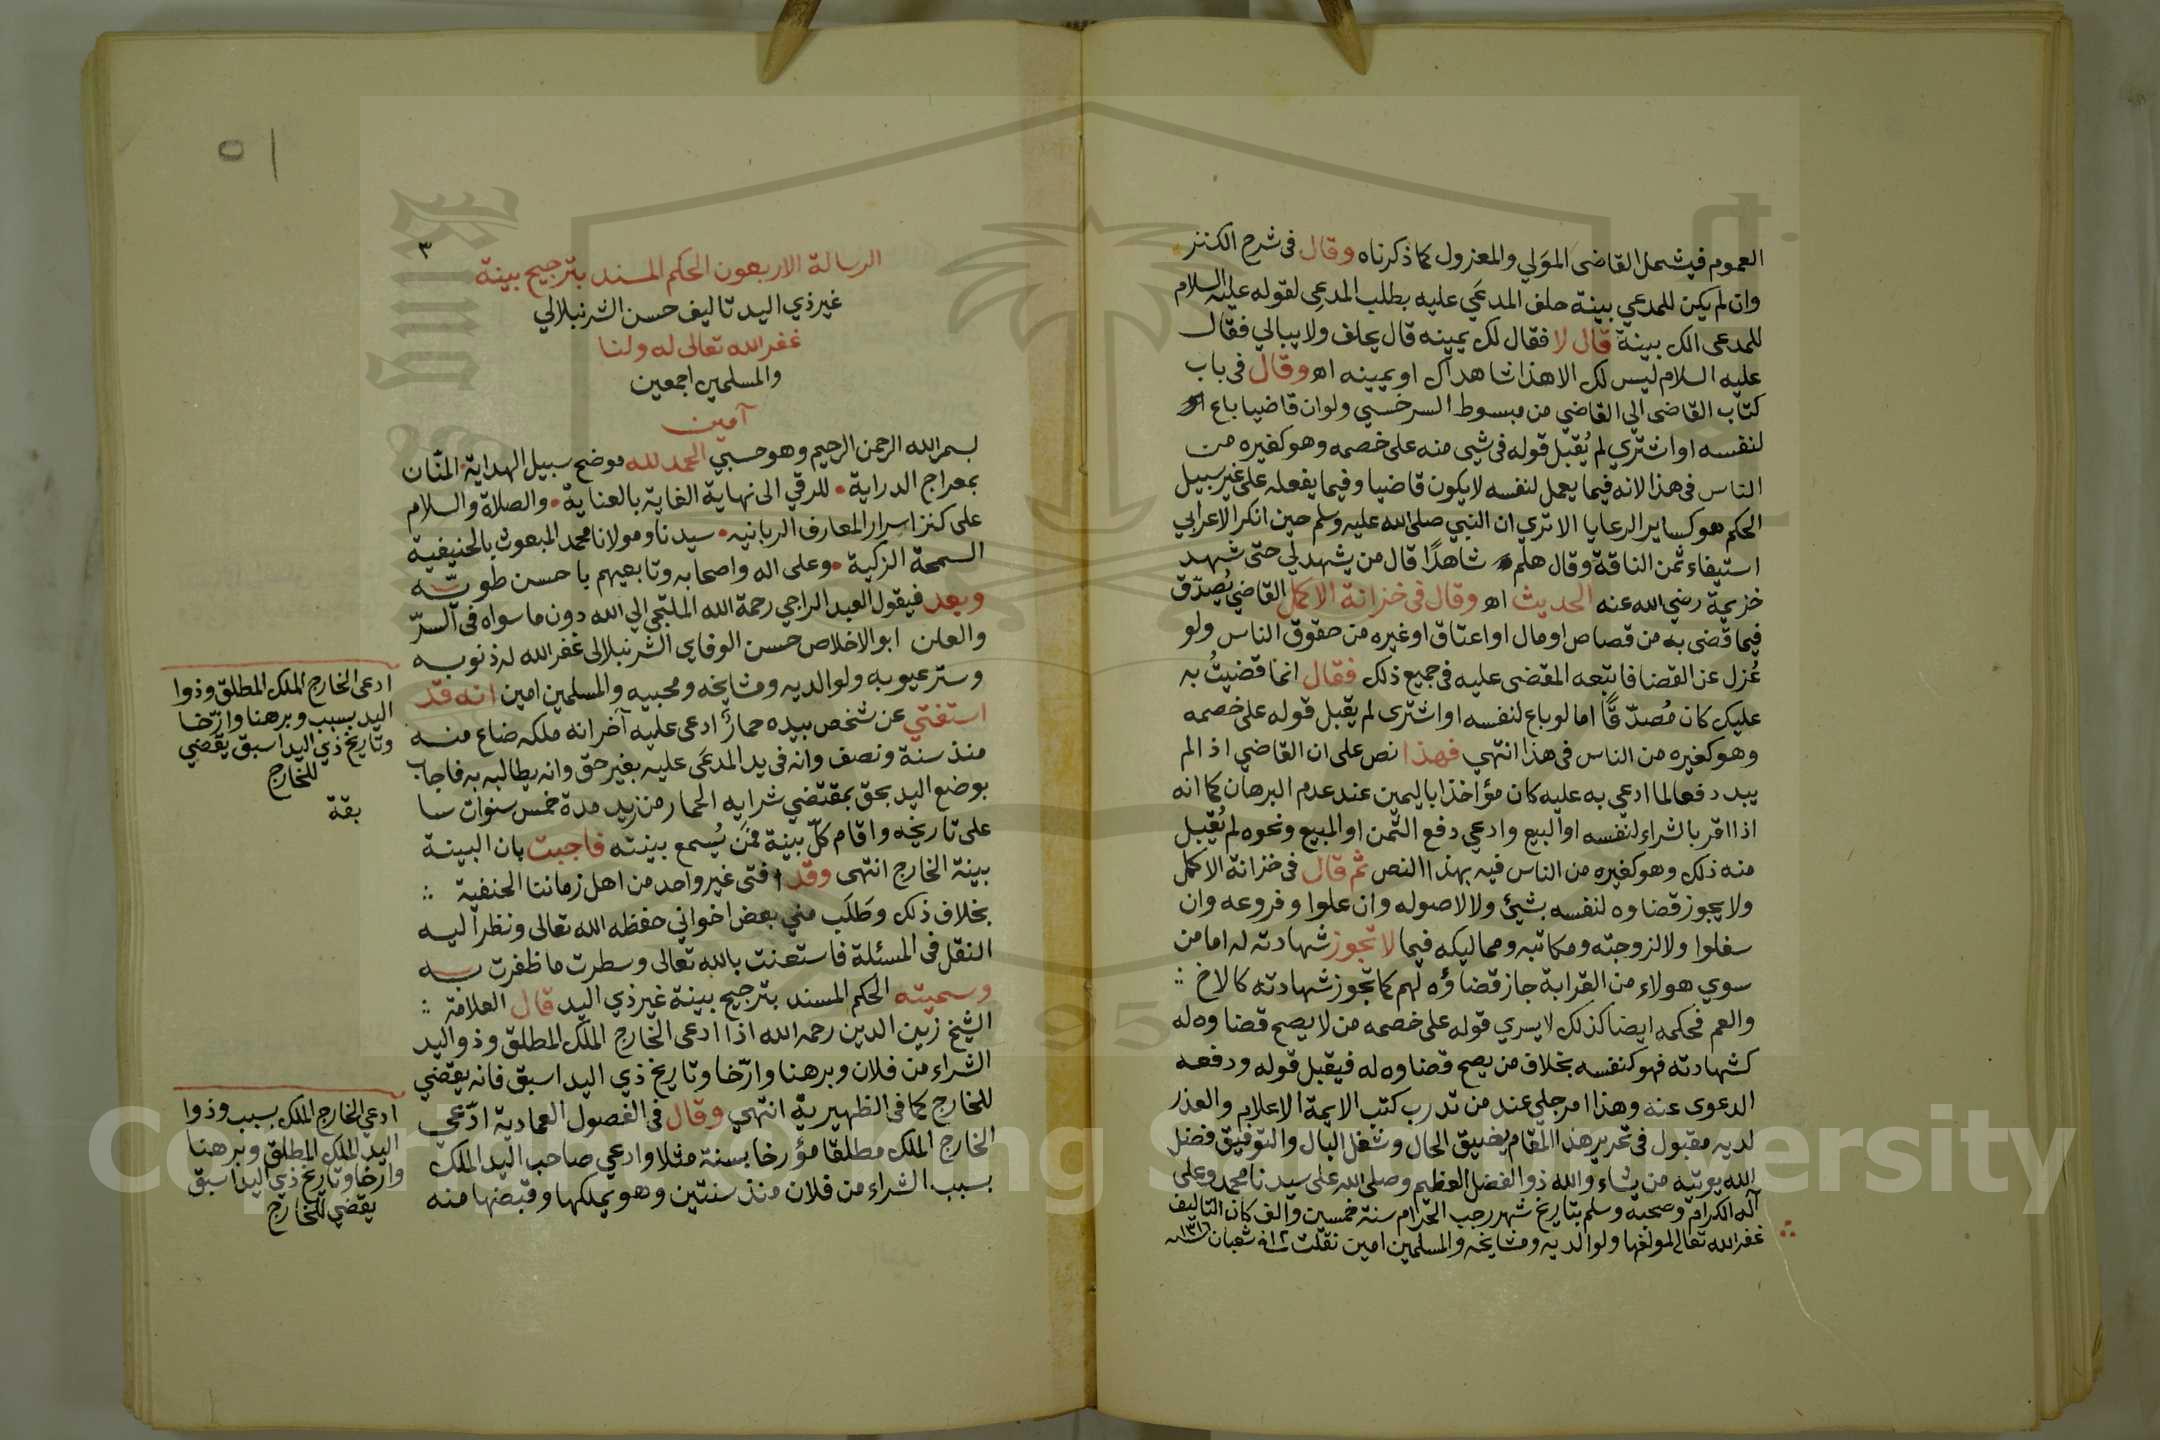 العموم فيشمل القاضى المولي والمعزول كما ذكرناه وقال فى شرح الكنز
وان لم يكن للمدعي بينة حلف المدعَي عليه بطلب المدعِي لقوله عليه السلام
للمدعى الك بينة قال لا فقال لك يمينه قال يحلف ولا يبالي فقال
عليه السلام ليس لك الا هذا شاهداك او يمينه اه وقال فى باب
كتاب القاضى الي القاضي من مبسوط السرخسي ولو ان قاضيا باع
لنفسه او اشتري لم يُقبل قوله فى شى منه على خصمه وهو كغيره من
الناس فى هذا لانه فيما يعمل لنفسه لا يكون قاضيا وفيما يفعله على غير سبيل
الحكم هو كساير الرعايا الا تري ان النبي صلى الله عليه وسلم حين انكر الاعرابي
استيفاء ثمن الناقة وقال هلم شاهدًا قال من يشهد لي حتى شهد
خزيمة رضي الله عنه الحديث اه وقال فى خزانة الاكمل القاضي يُصدّق
فيما قضى به من قصاص او مال او اعتاق او غيره من حقوق الناس ولو
عُزل عن القضا فاتبعه المقضى عليه فى جميع ذلك فقال انما قضيتُ به
عليك كان مُصدّقًا اما لو باع لنفسه او اشترى لم يقبل قوله على خصمه
وهو كغيره من الناس فى هذا انتهي فهذا نص على ان القاضي اذا لم
يبد دفعا لما ادعي به عليه كان مؤاخذا باليمين عند عدم البرهان كما انه
اذا اقر بالشراء لنفسه او البيع وادعي دفع الثمن او المبيع ونحوه لم يُقبل
منه ذلك وهو كغيره من الناس فيه بهذا النص ثم قال فى خزانة الاكمل
ولا يجوز قضاوه لنفسه بشئ ولا لاصوله وان علوا وفروعه وان
سفلوا ولا لزوجته ومكاتبه ومماليكه فيما لا تجوز شهادته له اما من
سوي هولاء من القرابة جاز قضاؤه لهم كما تجوز شهادته كالاخ
والعم فحكمه ايضا كذلك لا يسري قوله على خصمه من لا يصح قضاوه له
كشهادته فهو كنفسه بخلاف من يصح قضاوه له فيقبل قوله ودفعه
الدعوى عنه وهذا امر جلي عند من تدرب كتب الايمة الاعلام والعذر
لديه مقبول فى تحرير هذا المقام بضيق الحال وشغل البال والتوفيق فضل
الله يوتيه من يشاء والله ذو الفضل العظيم وصلى الله على سيدنا محمد وعلى
آله الكرام وصحبه وسلم بتاريخ شهر رجب الحرام سنة خمسين والف كان التاليف
غفر الله تعالى لمولفها ولوالديه ومشايخه والمسلمين امين نقلت ١٢ شعبان ١٣١٦
٣
الرسالة الاربعون الحكم المسند بترجيح بينة
غير ذي اليد تاليف حسن الشرنبلالي
غفر الله تعالى له ولنا
والمسلمين اجمعين
آمين
بسم الله الرحمن الرحيم وهو حسبي الحمد لله موضح سبيل الهداية المنّان
بمعراج الدراية للرقي الى نهاية الغاية بالعناية والصلاة والسلام
على كنز اسرار المعارف الربانيه سيدنا ومولانا محمد المبعوث بالحنيفية
السمحة الزكية وعلى اله واصحابه وتابعيهم باحسن طويه
وبعد فيقول العبد الراجي رحمة الله الملتجي الي الله دون ما سواه فى السرّ
والعلن ابو الاخلاص حسن الوفاي الشرنبلالى غفر الله له ذنوبه
وستر عيوبه ولوالديه ومشايخه ومحبيه والمسلمين امين انه قد
استفتي عن شخص بيده حمار ادعى عليه آخر انه ملكه ضاع منه
منذ سنة ونصف وانه فى يد المدعَى عليه بغير حق وانه يطالبه به فاجاب
بوضع اليد بحق بمقتضي شرايه الحمار من زيد مدة خمس سنوات سا
على تاريخه واقام كلّ بينة فمَن يُسمع بينته فاجبت بان البينة
بينة الخارج انتهى وقد افتى غير واحد من اهل زماننا الحنفية
بخلاف ذلك وطَلَب مني بعض اخواني حفظه الله تعالى ونظر اليه
النقل فى المسئلة فاستعنت بالله تعالى وسطرت ما ظفرت به
وسميته الحكم المسند بترجيح بينة غير ذي اليد قال العلامة
الشيخ زين الدين رحمه الله اذا ادعى الخارج الملك المطلق وذو اليد
الشراء من فلان وبرهنا وارّخا وتاريخ ذي اليد اسبق فانه يقتضي
للخارج كما فى الظهيرية انتهي وقال فى الفصول العمادية ادّعي
الخارج الملك مطلقا مؤرخا بسنة مثلا وادعي صاحب اليد الملك
بسبب الشراء من فلان منذ سنتين وهو يملكها وقبضها منه
ادعى الخارج الملك المطلق وذوا
اليد بسبب وبرهنا وارّخا
وتاريخ ذي اليد اسبق يقضي
للخارج
بقة
ادعي الخارج الملك بسبب وذوا
اليد الملك المطلق وبرهنا
وارخا وتاريخ ذي اليد اسبق
يقضي للخارج
1957
Copyright © King Saud University